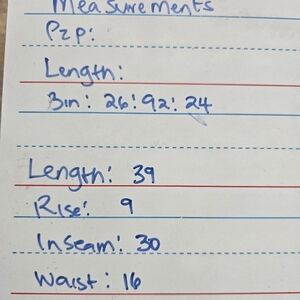 Measurements
P2P:
Length:
Bin: 26:92:24
Length: 39
Rise: 9
Inseam: 30
Waist: 16